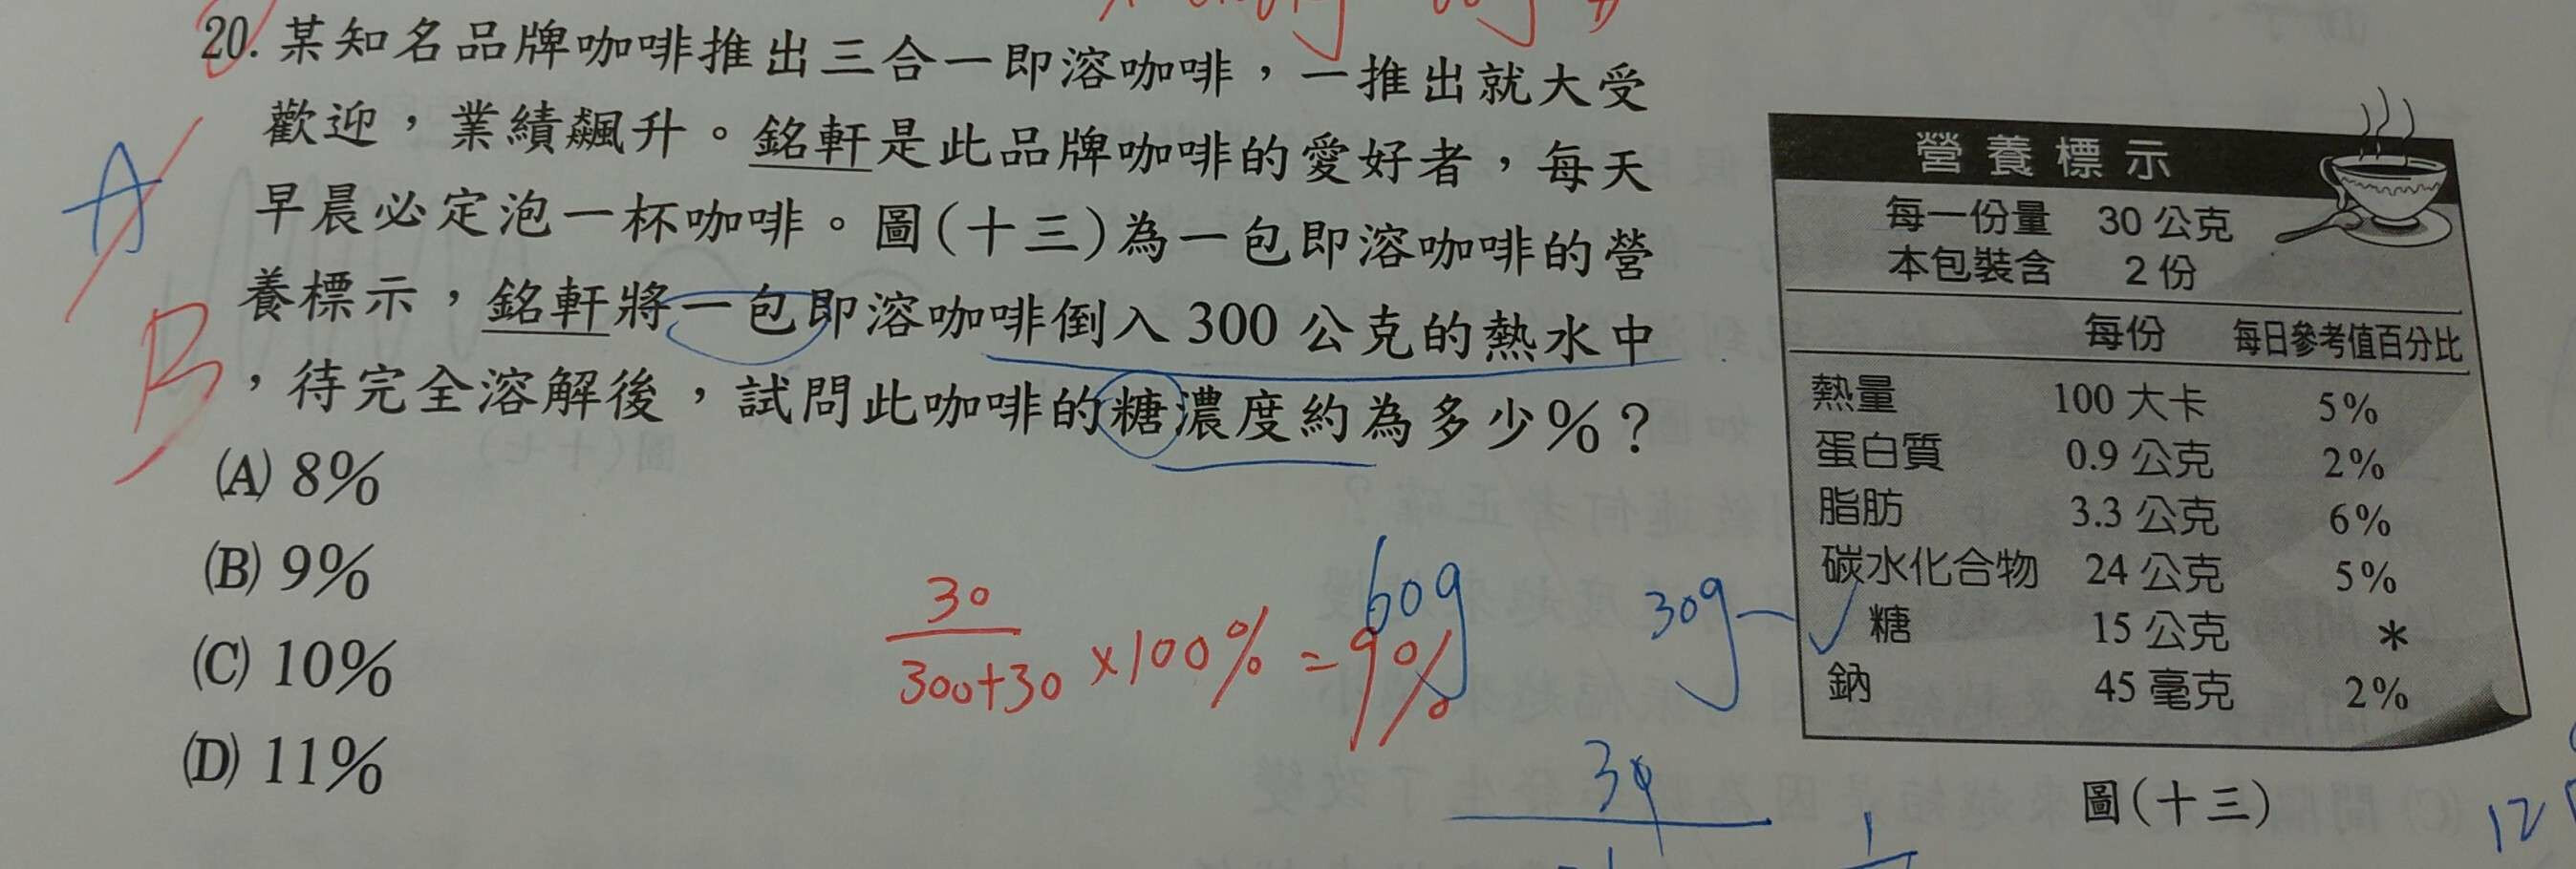 20. 某知名品牌咖啡推出三合一即溶咖啡，一推出就大受
歡迎，業績飆升。銘軒是此品牌咖啡的愛好者，每天
早晨必定泡一杯咖啡。圖(十三)為一包即溶咖啡的營
養標示，銘軒將一包即溶咖啡倒入 300 公克的熱水中
，待完全溶解後，試問此咖啡的糖濃度約為多少%？
A
B
(A) 8%
(B) 9%
(C) 10%
(D) 11%
30
300+30 ×100% = 9%
60g
30g
營養標示
每一份量 30 公克
本包裝含 2 份
每份 每日參考值百分比
熱量 100 大卡 5%
蛋白質 0.9 公克 2%
脂肪 3.3 公克 6%
碳水化合物 24 公克 5%
糖 15 公克 *
鈉 45 毫克 2%
圖(十三)
12